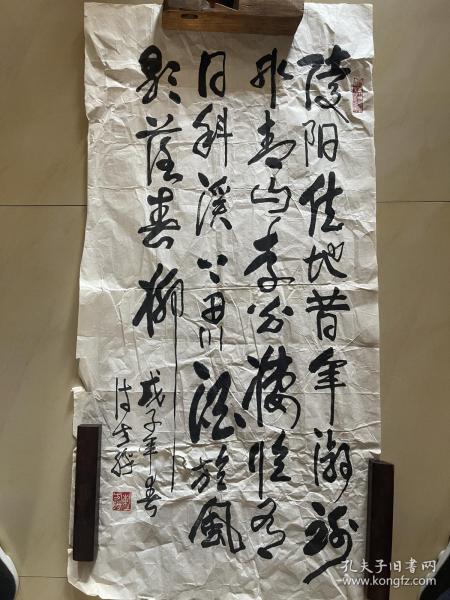 陵阳佳地昔年游谢
朓青山李白楼惟有
日斜溪上思酒旗风
影落春流
戊子年春
孔夫子旧书网
www.kongfz.com